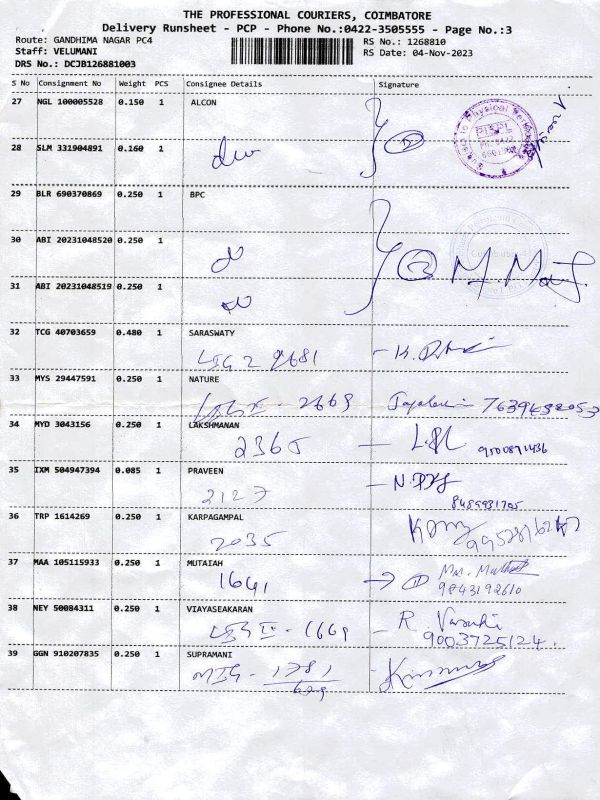 THE PROFESSIONAL COURIERS, COIMBATORE
Delivery Runsheet - PCP - Phone No.:0422-3505555 - Page No.:3
Route: GANDHIMA NAGAR PC4
RS No.: 1268810
Staff: VELUMANI
RS Date: 04-Nov-2023
DRS No.: DCJB126881003
S No Consignment No Weight PCS Consignee Details Signature
27 NGL 100005528 0.150 1 ALCON
28 SLM 331904891 0.160 1
29 BLR 690370869 0.250 1 BPC
30 ABI 20231048520 0.250 1
31 ABI 20231048519 0.250 1
32 TCG 40703659 0.480 1 SARASWATY
33 MYS 29447591 0.250 1 NATURE
2669
34 MYD 3043156 0.250 1 LAKSHMANAN
2365 9500871436
35 IXM 504947394 0.085 1 PRAVEEN
2127 8489931705
36 TRP 1614269 0.250 1 KARPAGAMPAL
2035
37 MAA 105115933 0.250 1 MUTAIAH
1641 9843192610
38 NEY 50084311 0.250 1 VIAYASEAKARAN
1669 R Vasuki
9003725124
39 GGN 910207835 0.250 1 SUPRAMANI
1781
629